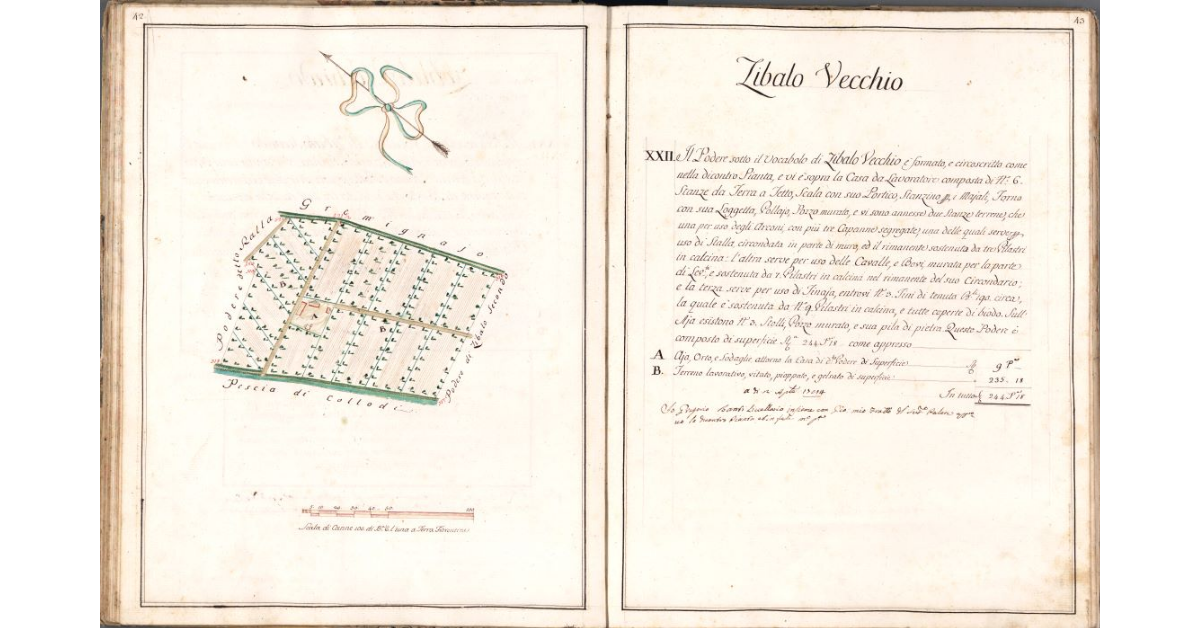 42
Gremignajo
Podere della Ralla
Podere di Zibalo Secondo
B
B
A
Pescia di Collodi
Scala di Canne 100 di Bra 6 l'una a Terra Fiorentina
43
Zibalo Vecchio
XXII. Il Podere sotto il Vocabolo di Zibalo Vecchio è formato, e circoscritto come
nella dicontro Pianta, e vi è sopra la Casa da Lavoratori composta di No. 6.
Stanze da Terra a Tetto, Scala con suo Portico, Stanzino p. i Majali, Forno
con sua Loggetta, Pollajo, Pozzo murato, e vi sono annesse due Stanze terrene, che
una per uso degli Arconi, con più tre Capanne segregate; una delle quali serve p.
uso di Stalla circondata in parte di muro, ed il rimanente sostenuta da tre Pilastri
in calcina: l'altra serve per uso delle Cavalle, e Bovi, murata per la parte
di Lev.e, e sostenuta da 7. Pilastri in calcina nel rimanente del suo Circondario;
e la terza serve per uso di Tinaja, entrovi No. 3. Tini di tenuta Bli. 190. circa,
la quale è sostenuta da No. 9. Pilastri in calcina, e tutte coperte di biodo. Sull'
Aja esistono No. 3. Stolli, Pozzo murato, e sua pila di pietra. Questo Podere è
composto di superficie 244 18 come appresso
A Aja, Orto, e Sodaglie attorno la Casa di do. Podere di Superficie 9
B. Terreno lavorativo, vitato, pioppato, e gelsato di superficie 235. 18
In tutto 244 18
Io Gregorio